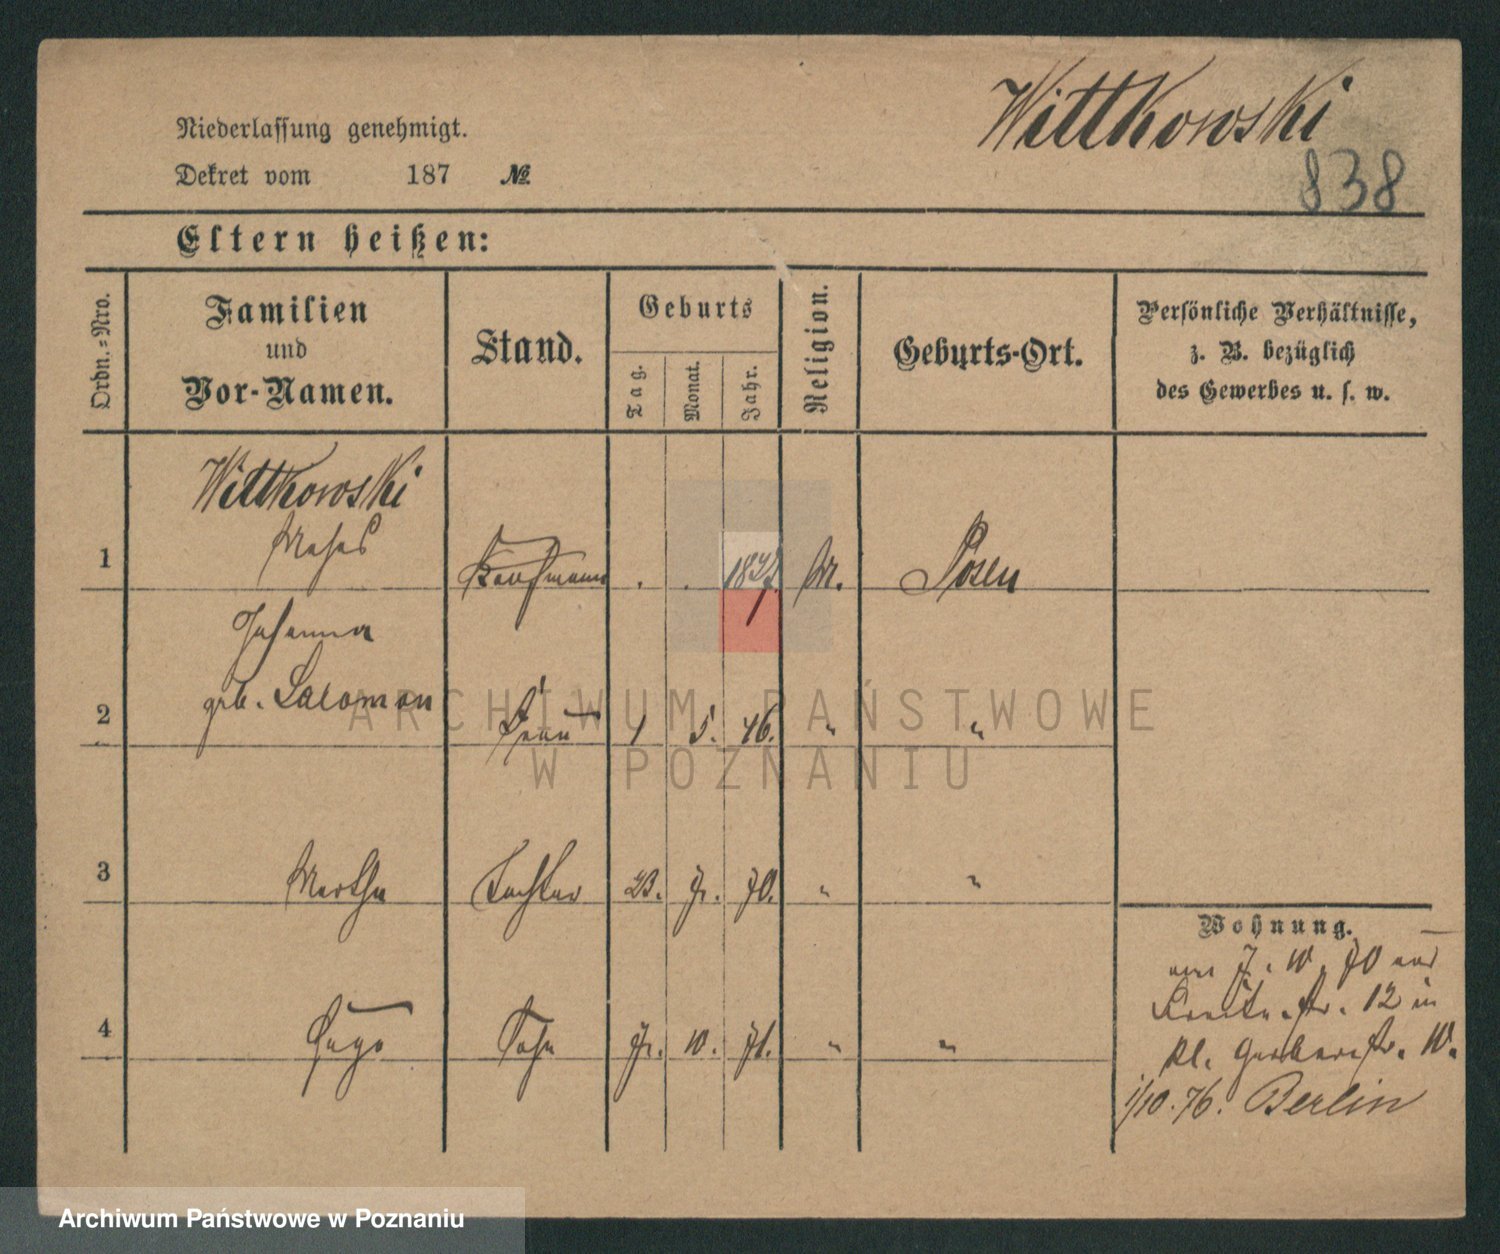 Wittkowski
838
Niederlassung genehmigt.
Dekret vom 187 №
Eltern heißen:
Ordn.-Nro.
Familien
und
Vor-Namen.
Stand.
Geburts
Tag.
Monat.
Jahr.
Religion.
Geburts-Ort.
Persönliche Verhältnisse,
z. B. bezüglich
des Gewerbes u. s. w.
Wittkowski
1 Moses Kaufmann . . M. Posen
Johanna
2 geb. Salomon Frau 1 5. 46. " "
3 Martha Tochter 23. 70. " "
4 Hugo Sohn 10. 71. " "
Wohnung.
10. 70 aus
str. 12 in
kl. Gerberstr. 10.
1/10. 76. Berlin
ARCHIWUM PAŃSTWOWE
W POZNANIU
Archiwum Państwowe w Poznaniu